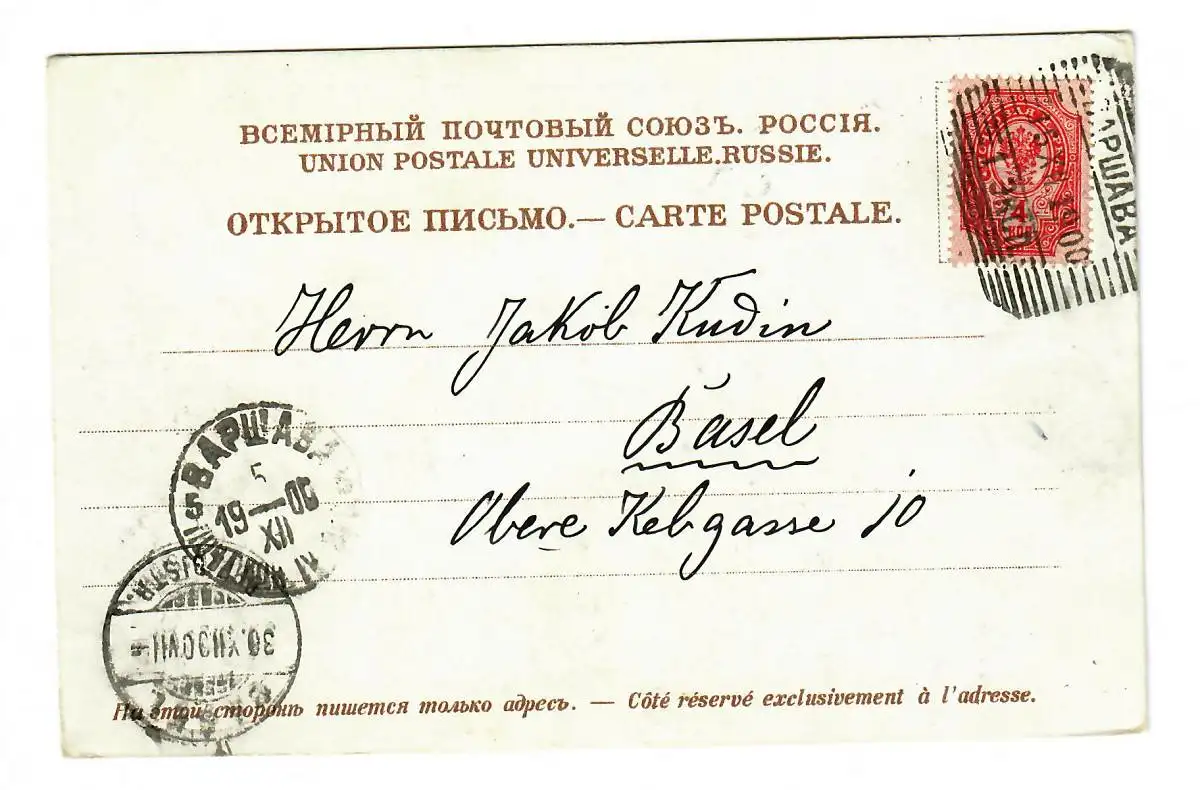 ВСЕМІРНЫЙ ПОЧТОВЫЙ СОЮЗЪ. РОССІЯ.
UNION POSTALE UNIVERSELLE.RUSSIE.
ОТКРЫТОЕ ПИСЬМО.— CARTE POSTALE.
4
КОП
ВАРШАВА
Herrn Jakob Kudin
Basel
Obere Rebgasse 10
ВАРШАВА
5
5
19—00
XII
На этой сторонѣ пишется только адресъ. — Côté réservé exclusivement à l'adresse.